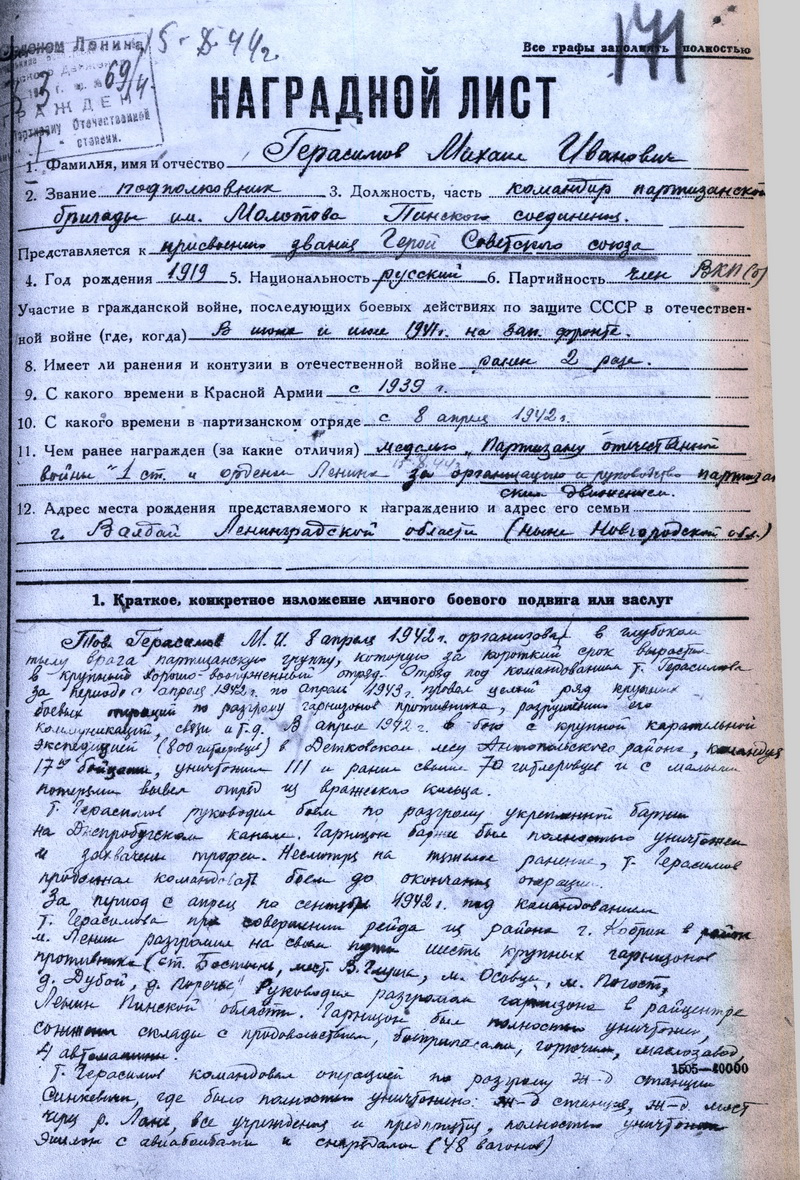 Орденом Ленина 15-8-44г.
171
Все графы заполнять полностью
69/4
НАГРАЖДЕН
Партизану Отечественной
степени.
НАГРАДНОЙ ЛИСТ
1. Фамилия, имя и отчество Герасимов Михаил Иванович
2. Звание подполковник 3. Должность, часть командир партизанской
бригады им. Молотова Пинского соединения.
Представляется к присвоению звания Герой Советского союза
4. Год рождения 1919 5. Национальность русский 6. Партийность член ВКП(б)
Участие в гражданской войне, последующих боевых действиях по защите СССР в отечествен-
ной войне (где, когда) В июне и июле 1941г. на Зап. фронте.
8. Имеет ли ранения и контузии в отечественной войне ранен 2 раза.
9. С какого времени в Красной Армии с 1939 г.
10. С какого времени в партизанском отряде с 8 апреля 1942г.
11. Чем ранее награжден (за какие отличия) медалью „Партизану отечественной
войны" 1 ст. и орденом Ленина за организацию и руководство партизан
ским движением.
12. Адрес места рождения представляемого к награждению и адрес его семьи
г. Валдай Ленинградской области (ныне Новгородской обл.)
1. Краткое, конкретное изложение личного боевого подвига или заслуг
Тов. Герасимов М.И. 8 апреля 1942г. организовал в глубоком
тылу врага партизанскую группу, которую за короткий срок вырастил
в крупный хорошо вооруженный отряд. Отряд под командованием т. Герасимова
за период с апреля 1942г. по апрель 1943г. провел целый ряд крупных
боевых операций по разгрому гарнизонов противника, разрушению его
коммуникаций, связи и т.д. В апреле 1942г. в бою с крупной карательной
экспедицией (800 гитлеровцев) в Детковском лесу Антопольского района, командуя
17ю бойцами, уничтожил 111 и ранил свыше 70 гитлеровцев и с малыми
потерями вывел отряд из вражеского кольца.
Т. Герасимов руководил боем по разгрому укрепленной баржи
на Днепробугском канале. Гарнизон баржи был полностью уничтожен
и захвачены трофеи. Несмотря на тяжелое ранение, т. Герасимов
продолжал командовать боем до окончания операции.
За период с апреля по сентябрь 1942г. под командованием
т. Герасимова при совершении рейда из района г. Кобрин в район
м. Ленин разгромил на своем пути шесть крупных гарнизонов
противника (ст. Бостынь, мест. В. Глуша, м. Осовцы, м. Погост,
д. Дубой, д. Поречье. Руководил разгромом гарнизона в райцентре
Ленин Пинской области. Гарнизон был полностью уничтожен,
сожжены склады с продовольствием, боеприпасами, горючим, маслозавод,
4 автомашины.
1505—40000
Т. Герасимов командовал операцией по разгрому ж-д станции
Синкевичи, где было полностью уничтожено: ж-д станция, ж-д мост
через р. Лань, все учреждения и предприятия, полностью уничтожен
эшелон с авиабомбами и снарядами (48 вагонов)